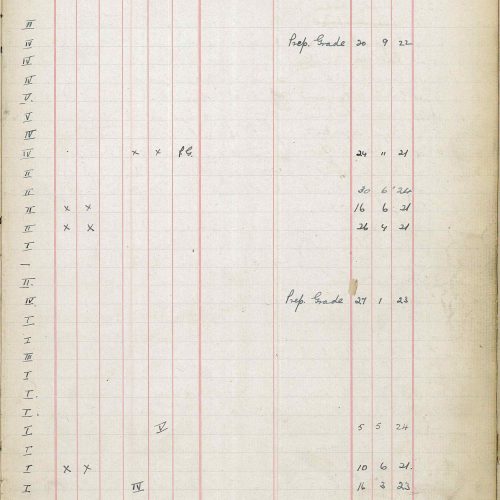 II
IV Prep. Grade 20 9 22
IV
IV
V.
V
IV
IV x x P.G. 24 11 21
II
II 30 6 '24
II x x 16 6 21
II x x 26 4 21
I
—
II.
IV. Prep. Grade 27 1 23
I
I
III
I
I.
I V 5 5 24
I
I x x 10 6 21.
I IV 16 3 23